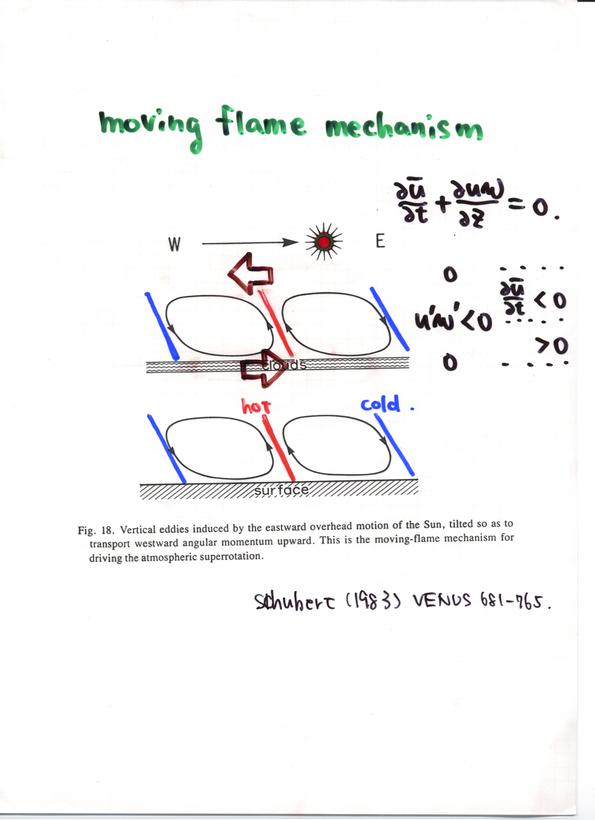 moving flame mechanism
∂ū/∂t + ∂uw/∂z = 0.
W E
0
u'w' < 0 ∂ū/∂t < 0
> 0
0
clouds
hot cold.
surface
Fig. 18. Vertical eddies induced by the eastward overhead motion of the Sun, tilted so as to
transport westward angular momentum upward. This is the moving-flame mechanism for
driving the atmospheric superrotation.
Schubert (1983) VENUS 681-765.